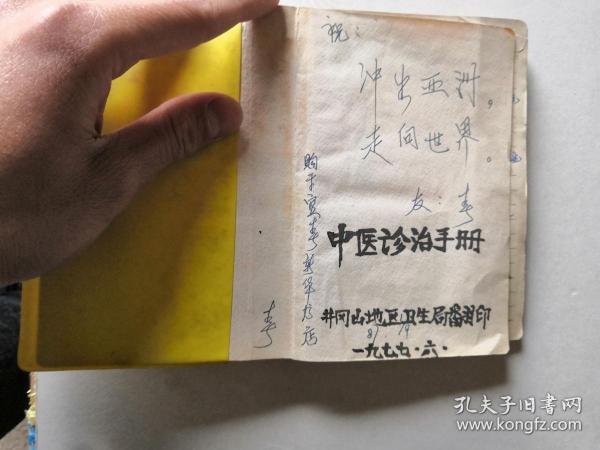 祝：
冲出亚洲，
走向世界。
友：春
中医诊治手册
井冈山地区卫生局翻印
一九七七·六·
购于宜春新华书店
春
孔夫子旧书网
www.kongfz.com